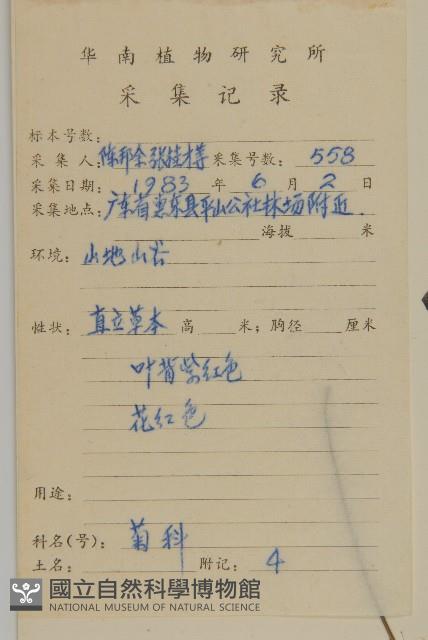 华南植物研究所
采集记录
标本号数:
采集人: 陈邦余张桂才等 采集号数: 558
采集日期: 1983 年 6 月 2 日
采集地点: 广东省惠东县平山公社林场附近.
海拔 米
环境: 山地山谷
性状: 直立草本 高 米; 胸径 厘米
叶背紫红色
花红色
用途:
科名(号): 菊科
土名: 附记: 4
國立自然科學博物館
NATIONAL MUSEUM OF NATURAL SCIENCE